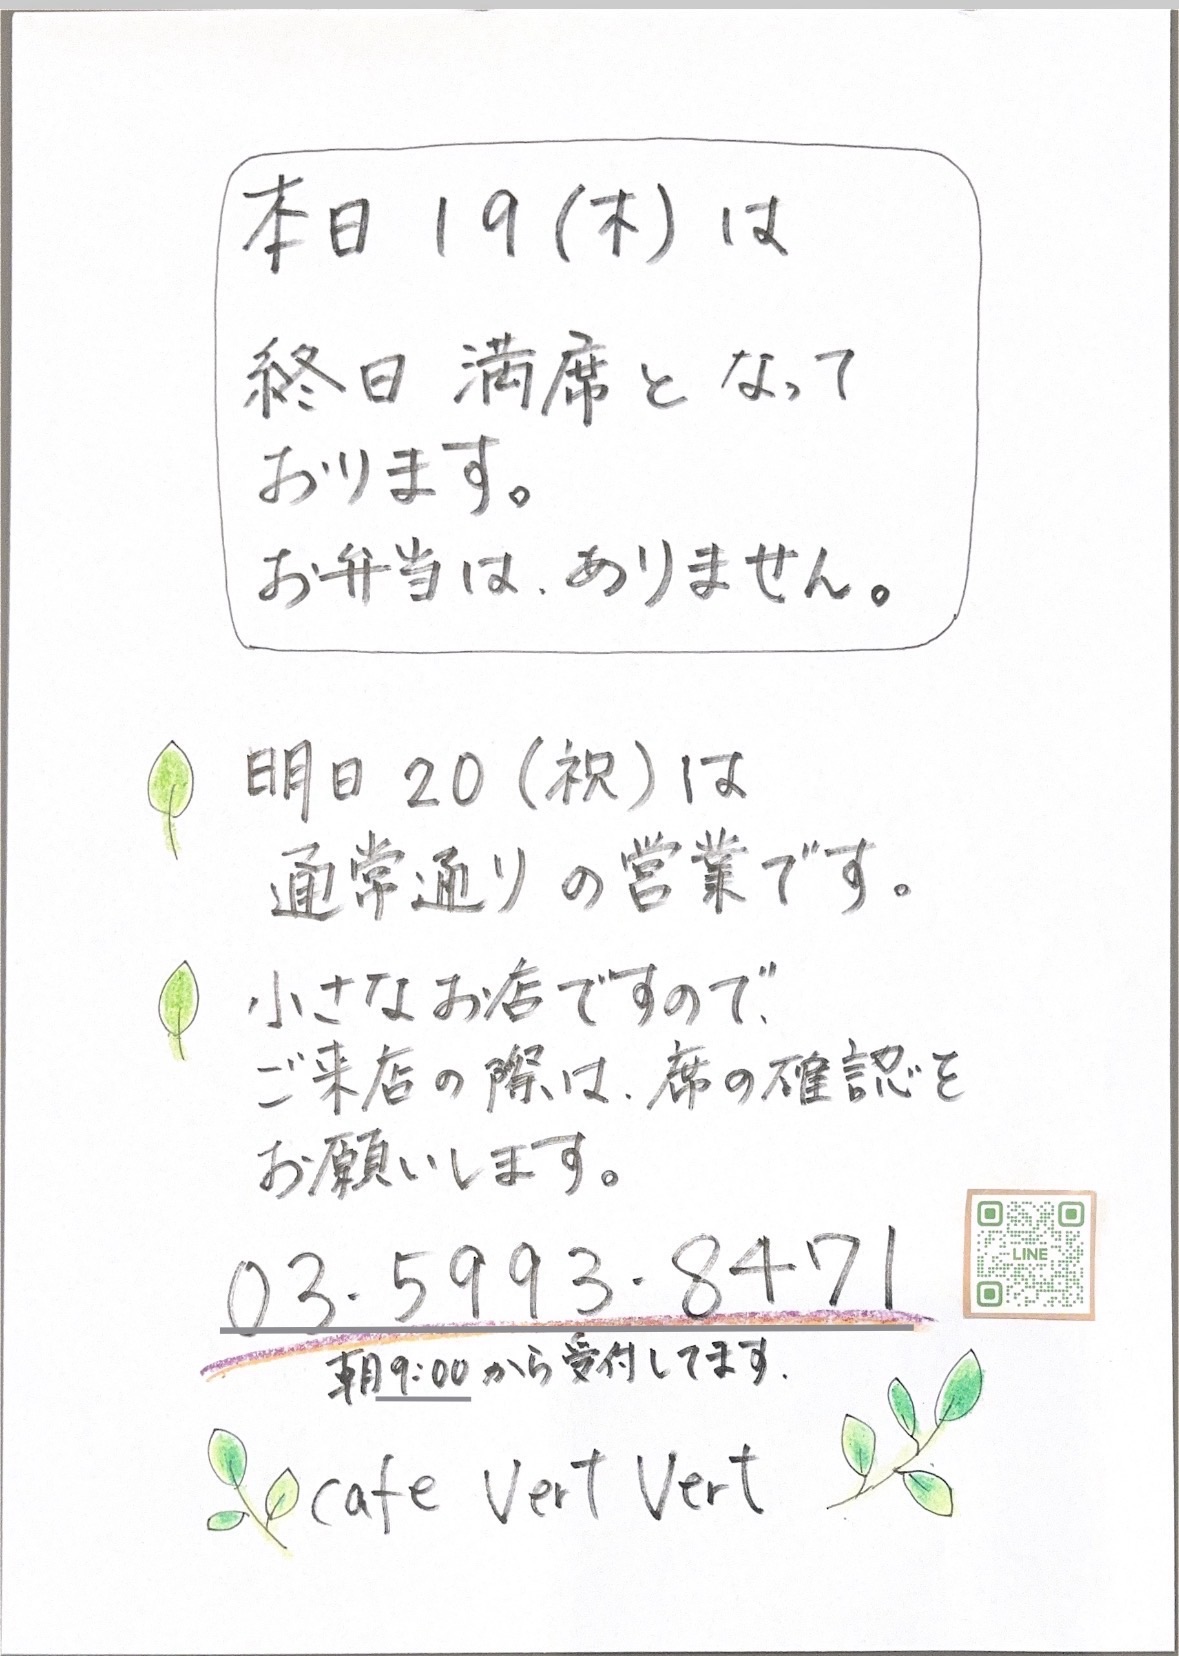 本日 19 (木) は
終日 満席と なって
おります。
お弁当は、ありません。
明日 20 (祝) は
通常通りの営業です。
小さなお店ですので、
ご来店の際は、席の確認を
お願いします。
03-5993-8471
LINE
朝9:00から受付してます.
cafe Vert Vert